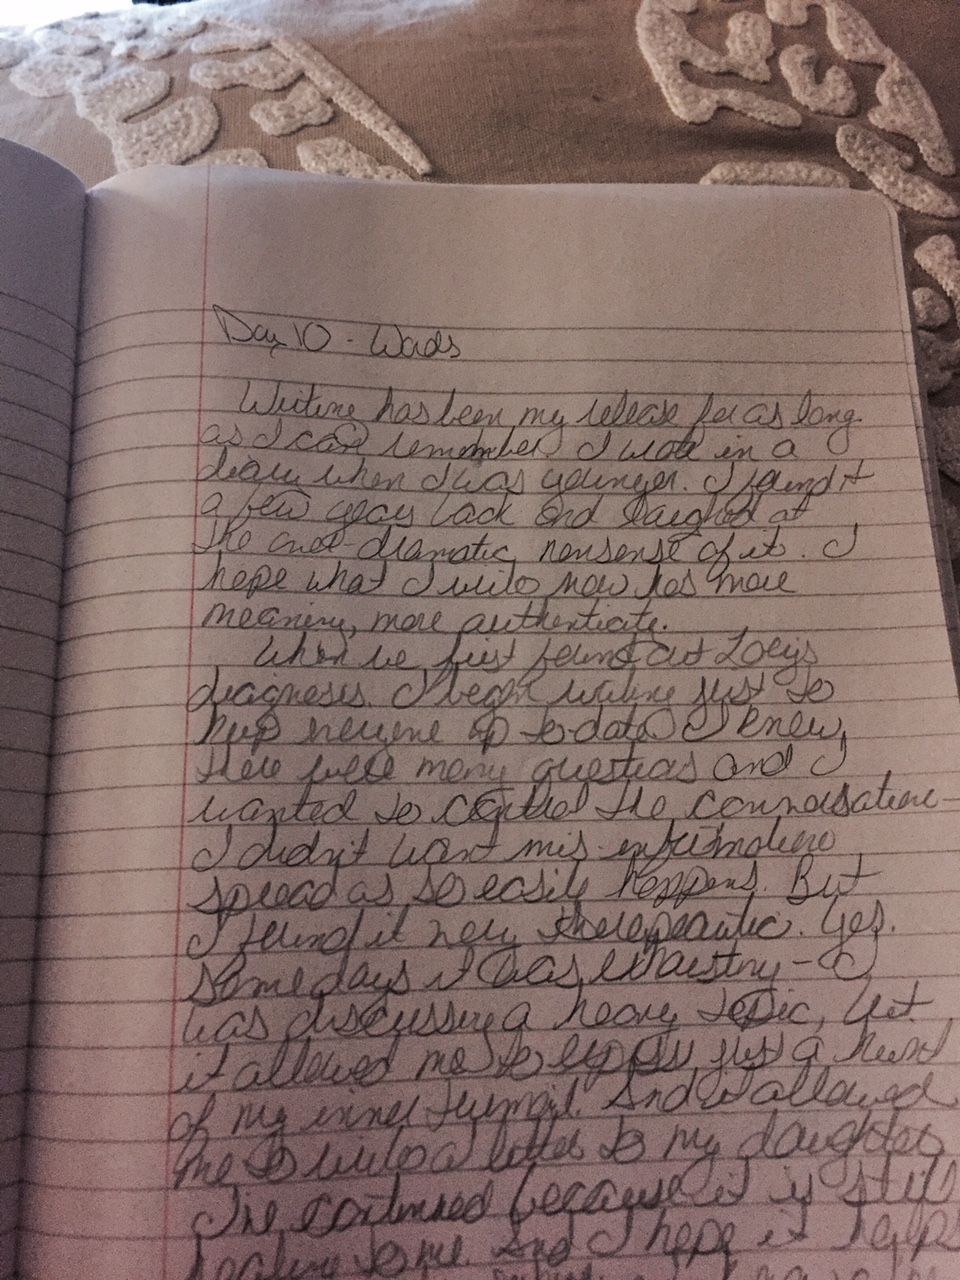 Day 10 - Words
Writing has been my release for as long
as I can remember. I wrote in a
diary when I was younger. I found it
a few years back and laughed at
the over-dramatic nonsense of it. I
hope what I write now has more
meaning, more authenticate.
When we first found out Zoey's
diagnoses. I began writing just to
keep everyone up to-date. I knew
there were many questions and I
wanted to control the conversation-
I didn't want mis-information
spread as so easily happens. But
I found it very therepeautic. Yes.
Some days it was exhausting - I
was discussing a heavy topic, but
it allowed me to express just a hint
of my inner turmoil. And it allowed
me to write a letter to my daughter
I've continued because it is still
healing to me. And I hope it helps